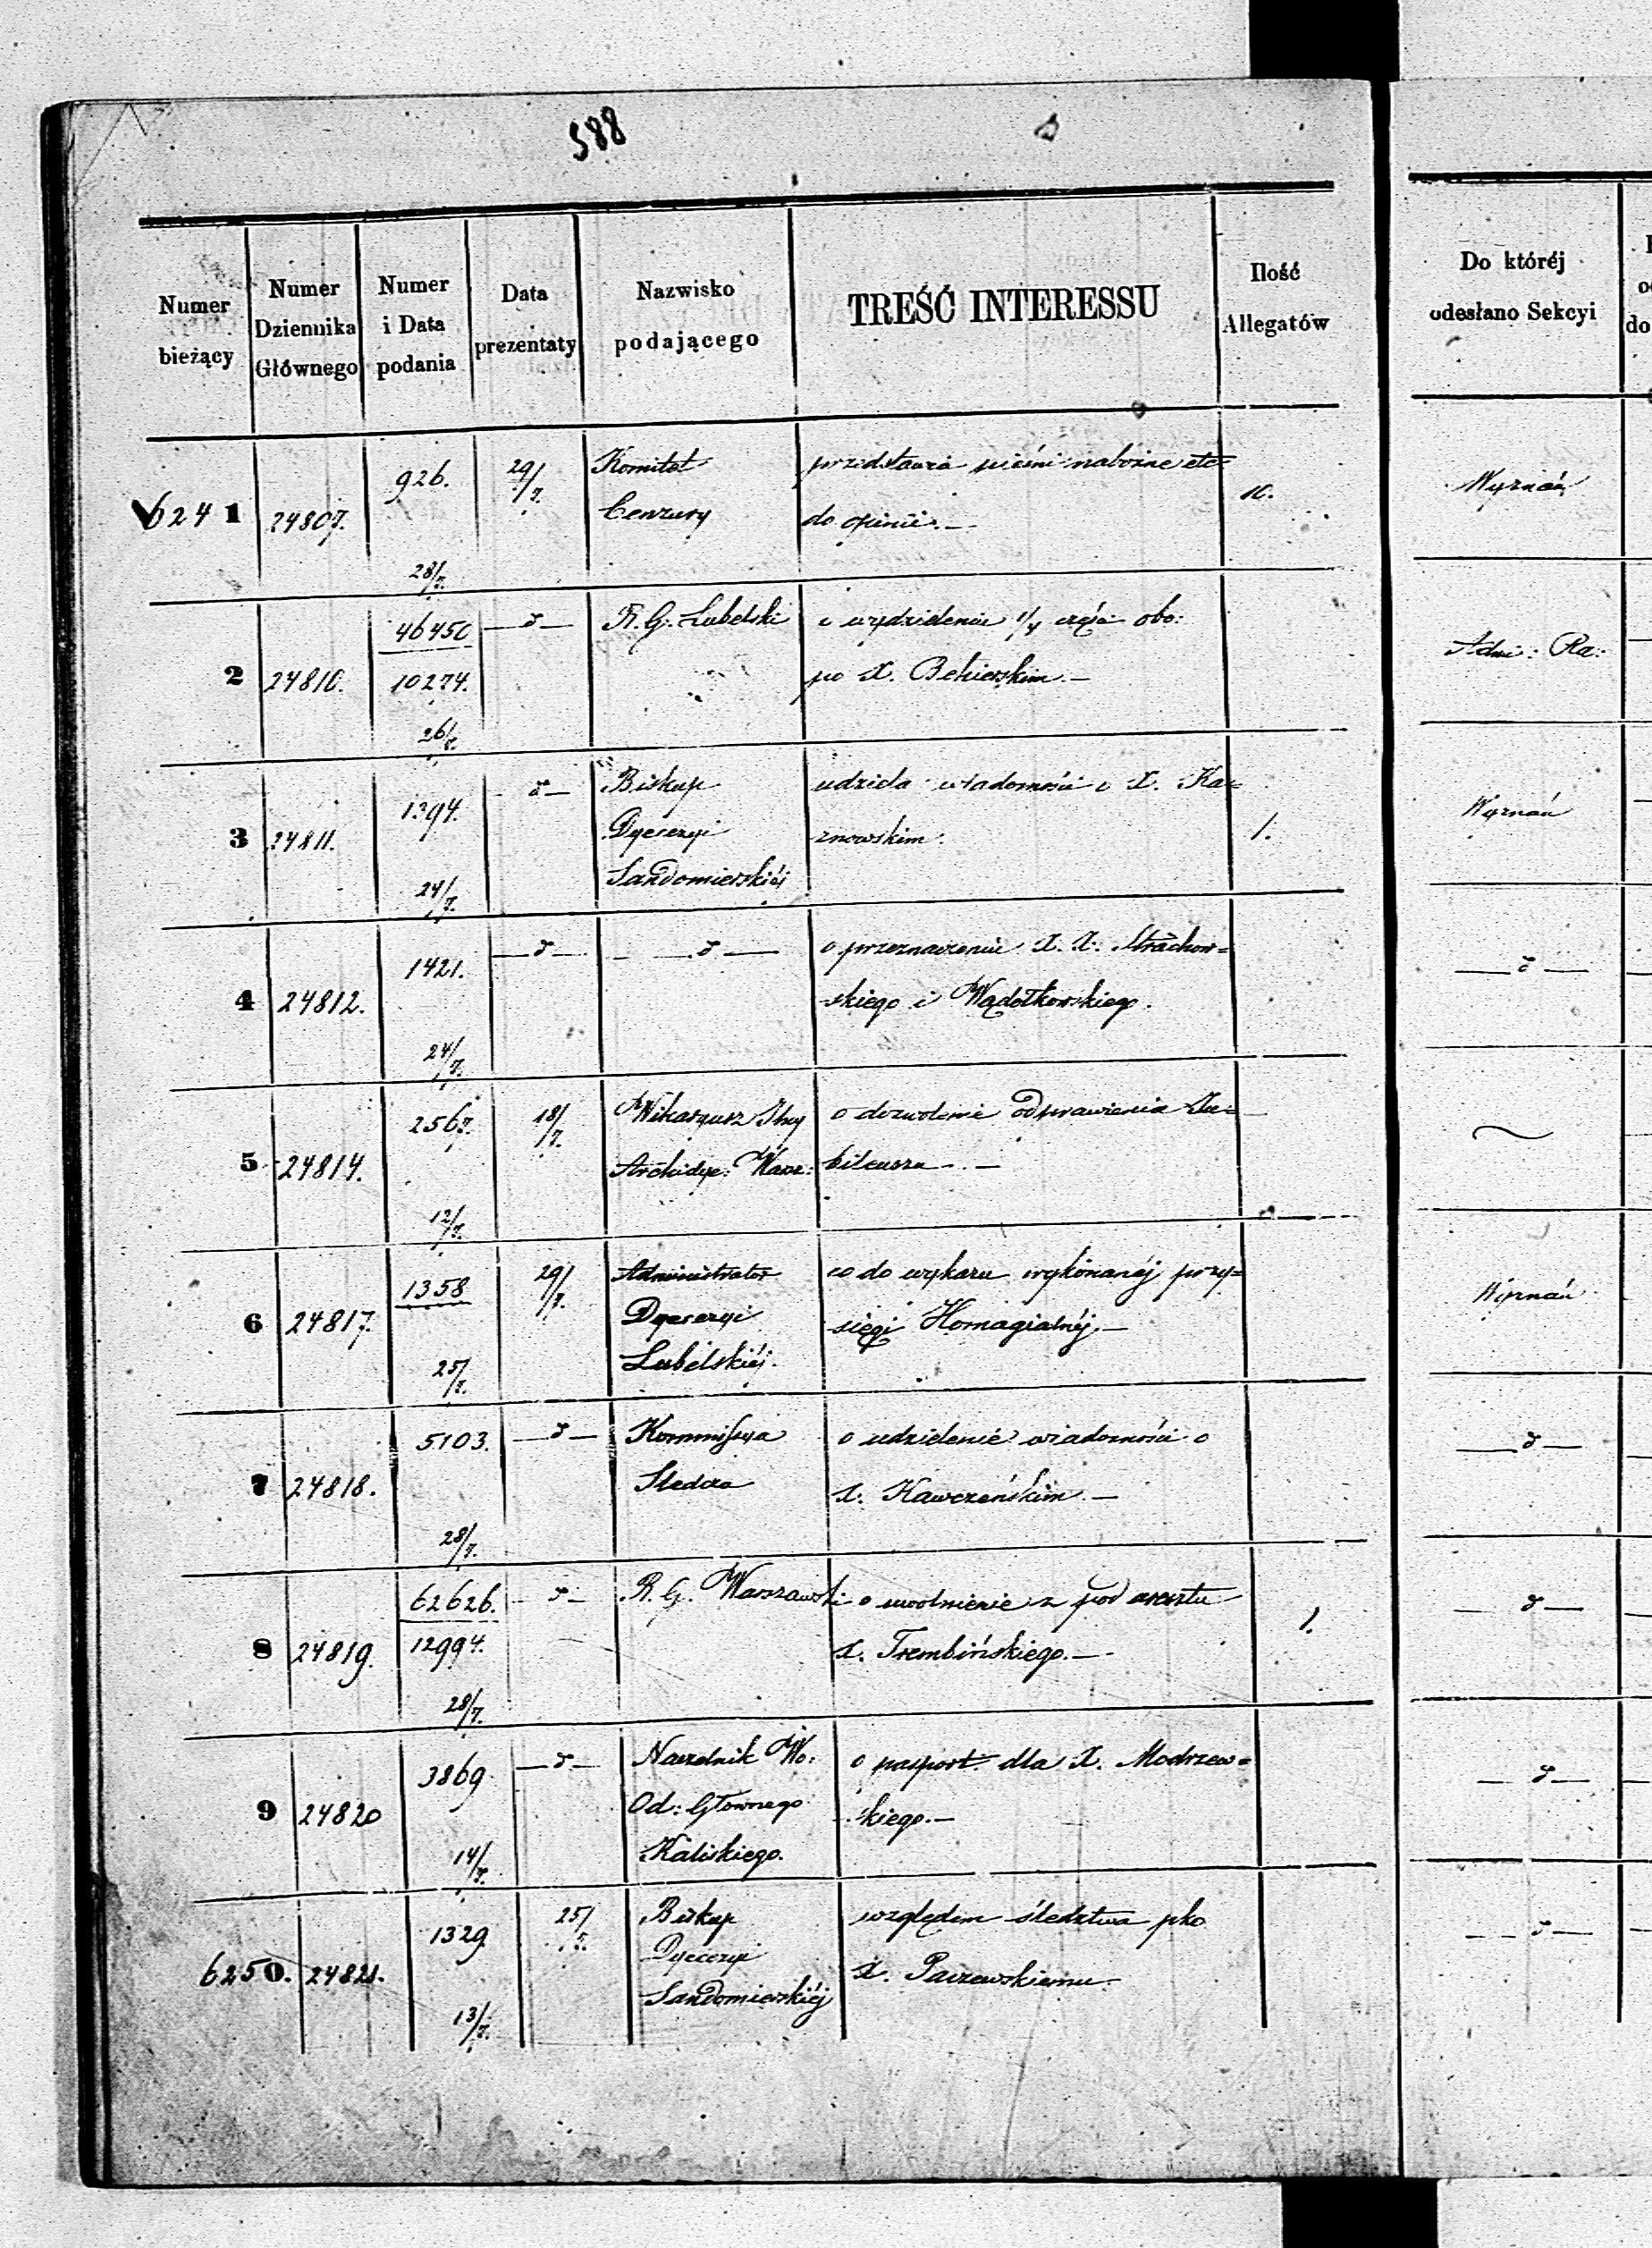 588
Numer bieżący
Numer Dziennika Głównego
Numer i Data podania
Data prezentaty
Nazwisko podającego
TREŚĆ INTERESSU
Ilość Allegatów
Do któréj odesłano Sekcyi
6241 24807. 926. 28/7. 29/7. Komitet przedstawia pieśni nabożne etc 10. Wyznań
Cenzury do opinii.—
2 24810. 46450 —d— R. G. Lubelski o wydzielenie 1/4 części obo: Admi: Ra:
10274. po X. Bekierskim.—
26/7.
3 24811. 1394. d— Biskup udziela wiadomości o X. Ka= 1. Wyznań
Dyecezyi znowskim.
24/7. Sandomierskiéj
4 24812. 1421. —d— —d— o przeznaczeniu X. X. Strachow= —d—
skiego i Wądołkowskiego.
24/7.
5 24814. 2567. 18/7. Wikaryusz Jlny o dozwolenie odprawienia Ju=
Archidye: Warsz: bileuszu.—
12/7.
6 24817. 1358 29/7. Administrator co do wykazu wykonanéj przy= Wyznań
Dyecezyi sięgi Homagialnéj.—
25/7. Lubelskiéj.
7 24818. 5103. —d— Kommissya o udzielenie wiadomości o —d—
Śledcza X. Kawczeńskim.—
28/7.
8 24819. 62626. —d— R. G. Warszawski o uwolnienie z pod aresztu 1. —d—
12994. X. Trembińskiego.—
28/7.
9 24820 3869. —d— Naczelnik Wo: o pasport dla X. Modrzew= —d—
Od: Głównego skiego.—
14/7. Kaliskiego.
6250. 24821. 1329. 25/7. Biskup względem śledztwa pko —d—
Dyecezyi X. Paczewskiemu.
13/7. Sandomierskiéj